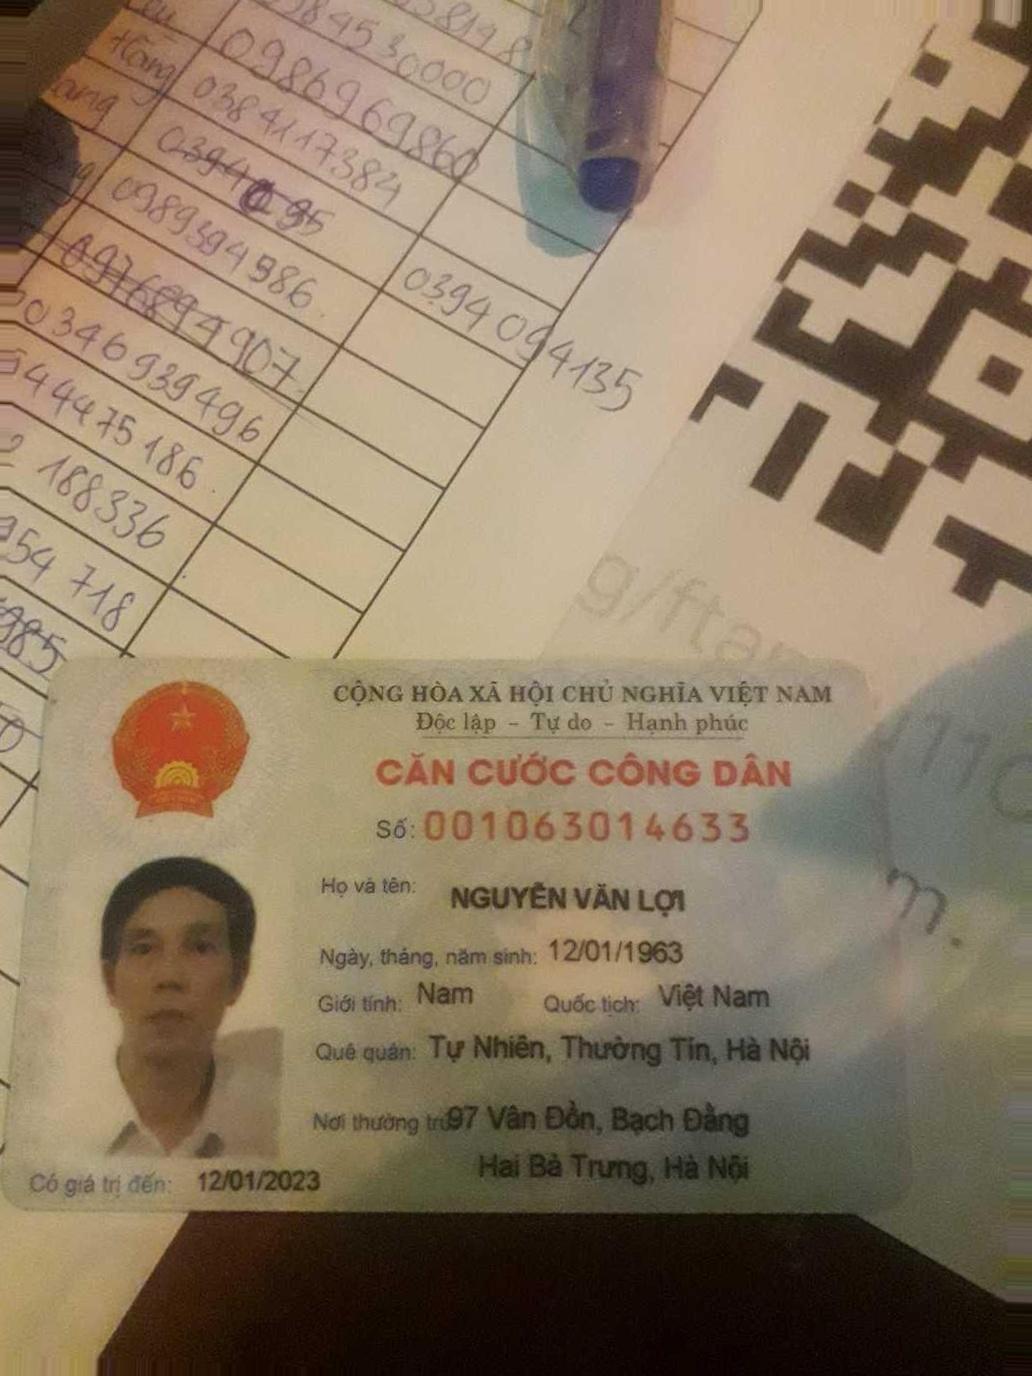 0845 30000
Hằng 0986969860
0384117384
0989394986
0394094135
0976894907
0346939496
444475186
188336
954 718
985
g/ftan
m.
CỘNG HÒA XÃ HỘI CHỦ NGHĨA VIỆT NAM
Độc lập – Tự do – Hạnh phúc
CĂN CƯỚC CÔNG DÂN
Số: 001063014633
Họ và tên: NGUYỄN VĂN LỢI
Ngày, tháng, năm sinh: 12/01/1963
Giới tính: Nam Quốc tịch: Việt Nam
Quê quán: Tự Nhiên, Thường Tín, Hà Nội
Nơi thường trú 97 Vân Đồn, Bạch Đằng
Hai Bà Trưng, Hà Nội
Có giá trị đến: 12/01/2023